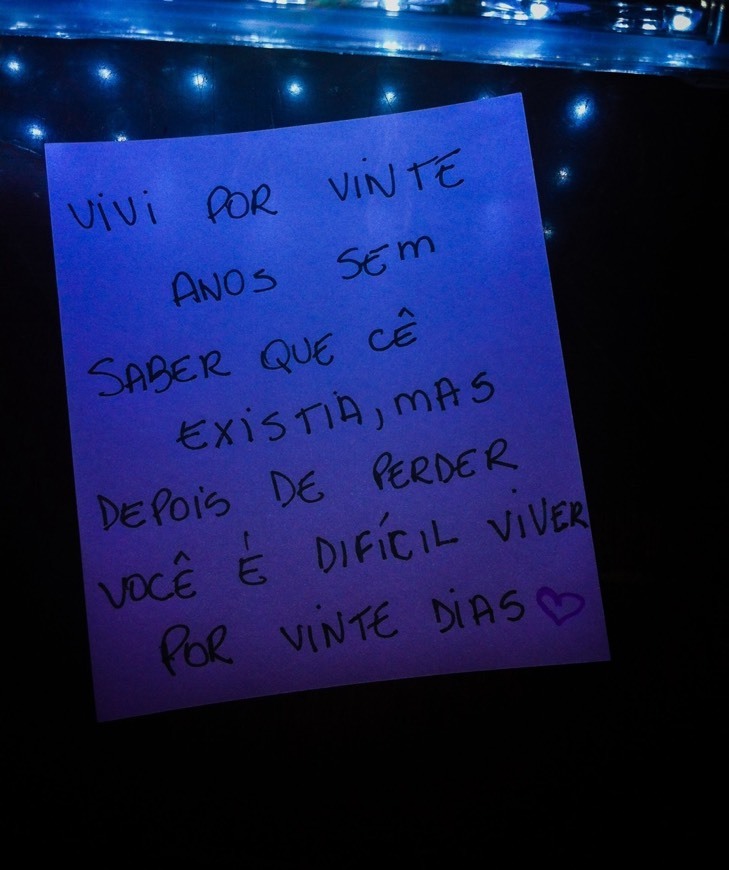 VIVI POR VINTE
ANOS SEM
SABER QUE CÊ
EXISTIA, MAS
DEPOIS DE PERDER
VOCÊ É DIFÍCIL VIVER
POR VINTE DIAS